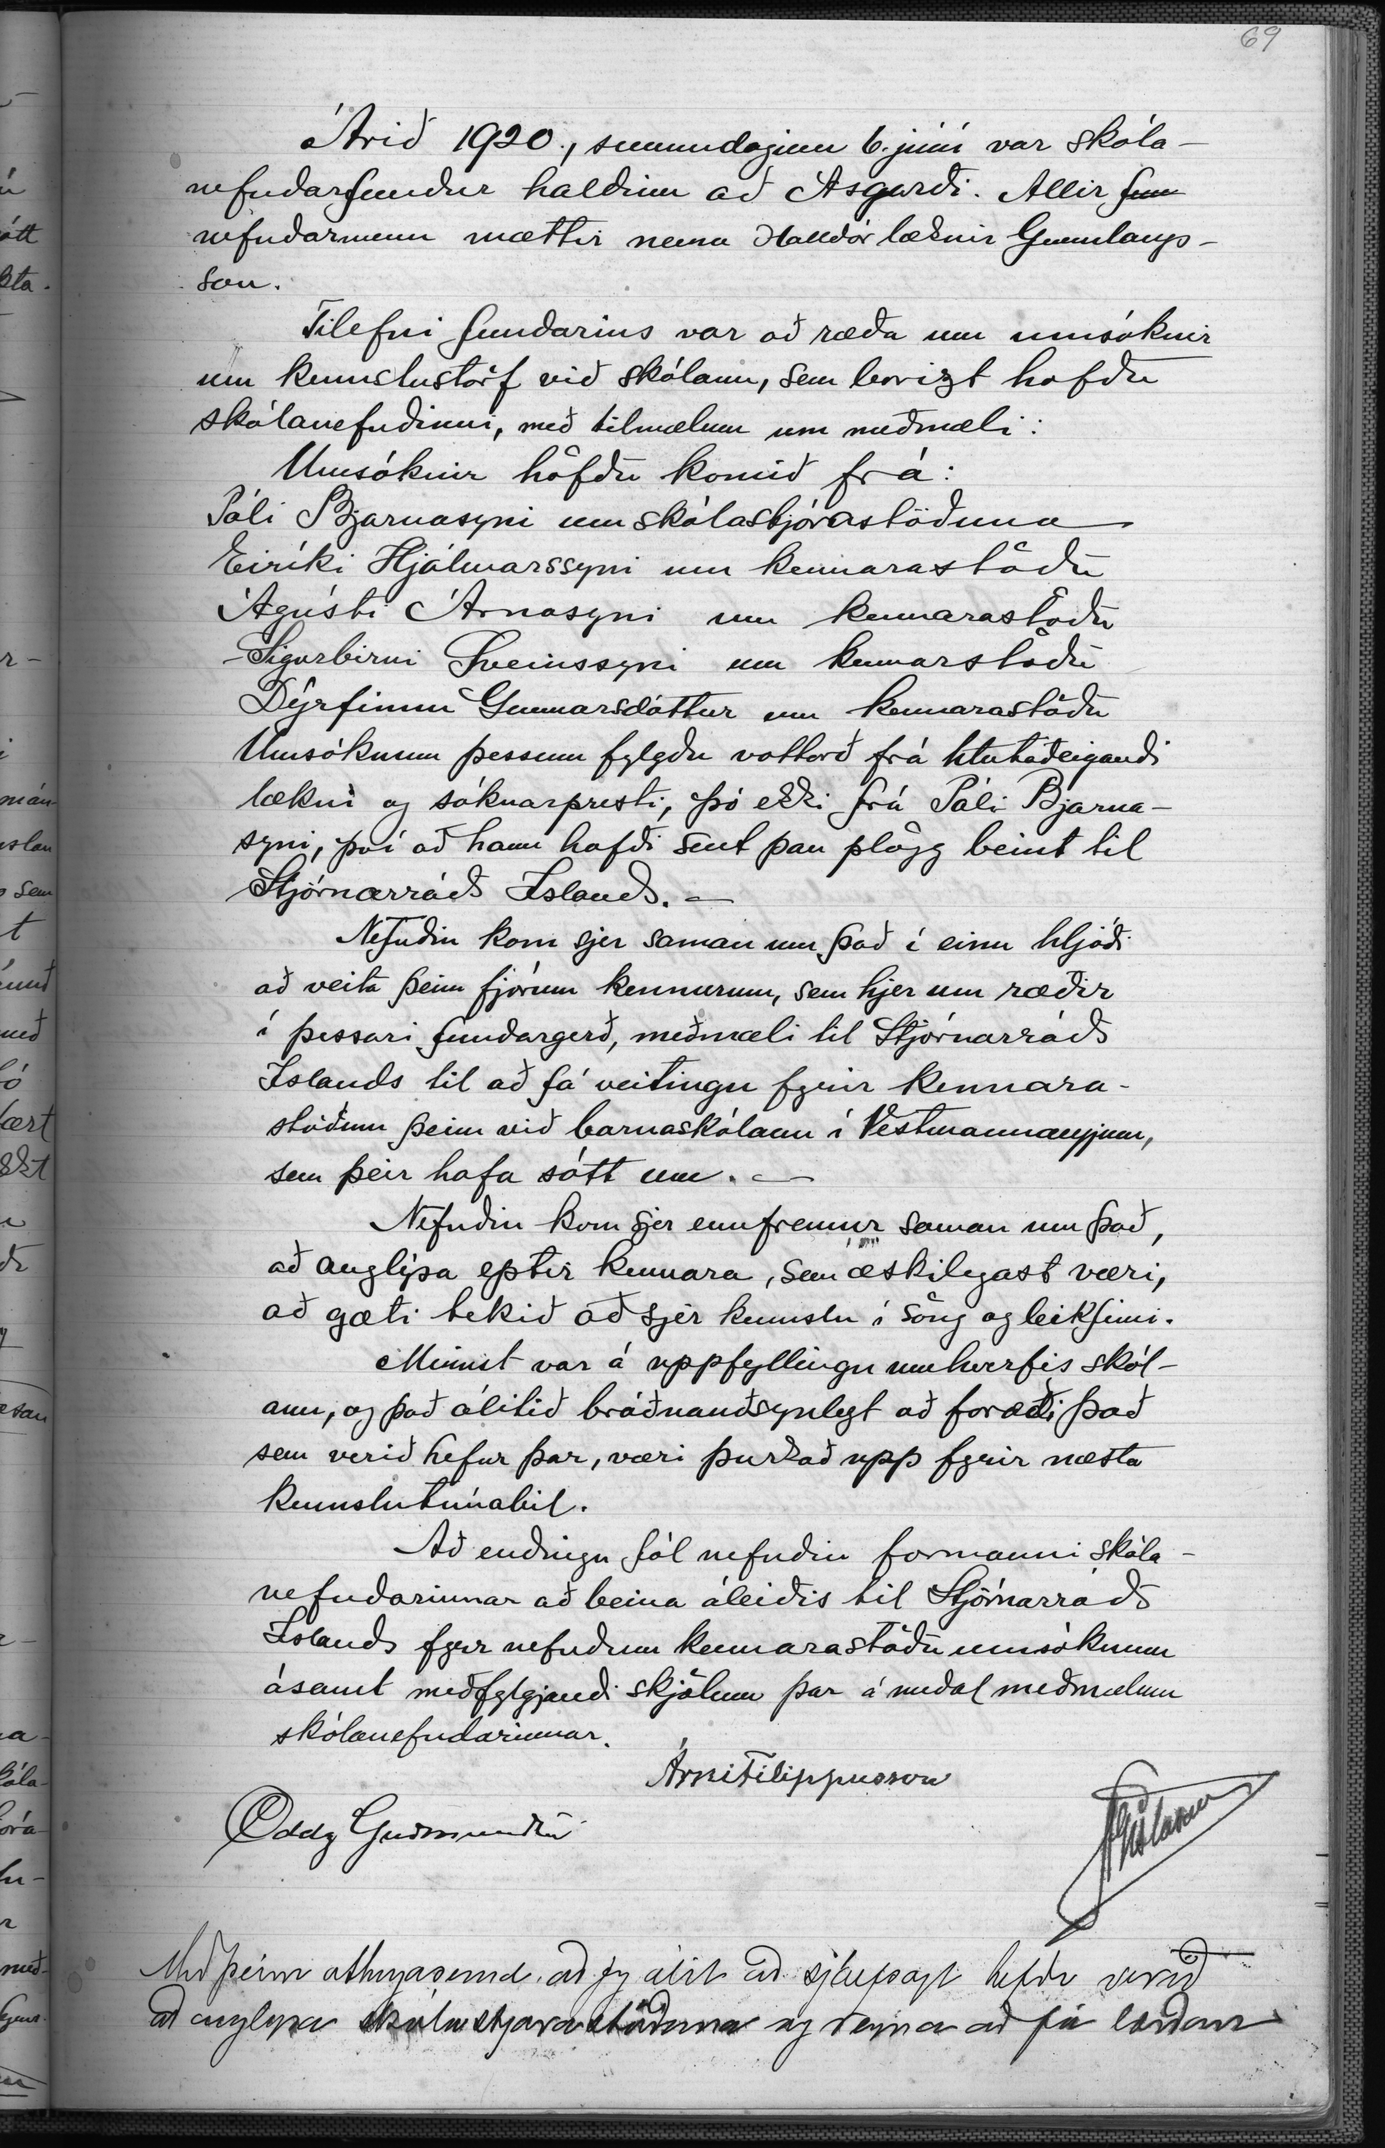 69
Árið 1920., sunnudaginn 6. júní var skóla-
nefndarfundur haldinn að Ásgarði. Allir fun
nefndarmenn mættir nema Halldór læknir Gunnlaugs-
son.
Tilefni fundarins var að ræða um umsóknir
um kennslustörf við skólann, sem borizt hofðu
skólanefndinni, með tilmælum um meðmæli:
Umsóknir höfðu komið frá:
Páli Bjarnasyni um skólastjórastöðuna
Eiríki Hjálmarssyni um kennarastöðu
Ágústi Árnasyni um kennarastöðu
Sigurbirni Sveinssyni um kennarstöðu
Dýrfinnu Gunnarsdóttur um kennarastöðu
Umsóknum þessum fylgdu vottorð frá hlutaðeigandi
lækni og sóknarpresti, þó ekki frá Páli Bjarna-
syni, því að hann hafði sent þau plögg beint til
Stjórnarráðs Íslands. —
Nefndin kom sjer saman um það í einu hljóði
að veita þeim fjórum kennurum, sem hjer um ræðir
í þessari fundargerð, meðmæli til Stjórnarráðs
Íslands til að fá veitingu fyrir kennara-
stöðum þeim við barnaskólann í Vestmannaeyjum,
sem þeir hafa sótt um. —
Nefndin kom sjer ennfremur saman um það,
að auglýsa eptir kennara, sem æskilegast væri,
að gæti tekið að sjer kennslu í söng og leikfimi.
Minnst var á uppfyllingu umhverfis skól-
ann, og það álitið bráðnauðsynlegt að foræði það
sem verið hefur þar, væri þurkað upp fyrir næsta
kennslutímabil.
Að endingu fól nefndin formanni skóla-
nefndarinnar að beina áleiðis til Stjórnarráðs
Íslands fyrr nefndum kennarastöðu umsóknum
ásamt meðfylgjandi skjölum þar á meðal meðmælum
skólanefndarinnar.
Árni Filippusson
Oddg Guðmundss
Með þeirri athugasemd, að jeg álit að sjálfsagt hefði verið
að auglysa skólastjorastöðuna og reyna að fá lærðan